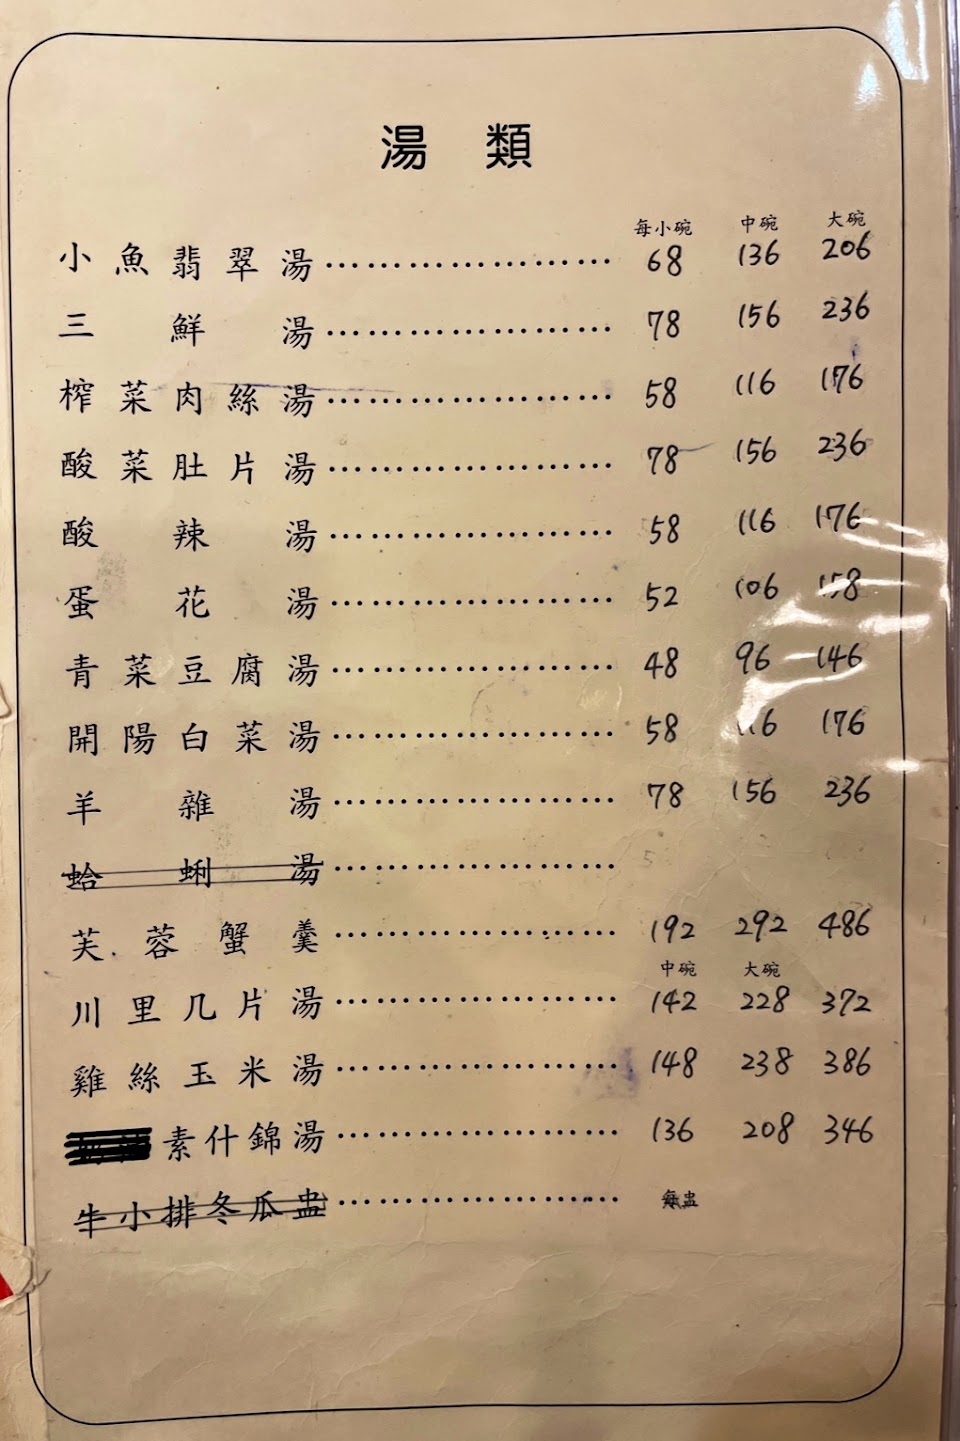 湯類
每小碗 中碗 大碗
小魚翡翠湯…………………… 68 136 206
三鮮湯…………………… 78 156 236
榨菜肉絲湯…………………… 58 116 176
酸菜肚片湯…………………… 78 156 236
酸辣湯…………………… 58 116 176
蛋花湯…………………… 52 106 158
青菜豆腐湯…………………… 48 96 146
開陽白菜湯…………………… 58 116 176
羊雜湯…………………… 78 156 236
蛤蜊湯……………………
芙蓉蟹羹…………………… 192 292 486
中碗 大碗
川里几片湯…………………… 142 228 372
雞絲玉米湯…………………… 148 238 386
素什錦湯…………………… 136 208 346
牛小排冬瓜盅…………………… 每盅